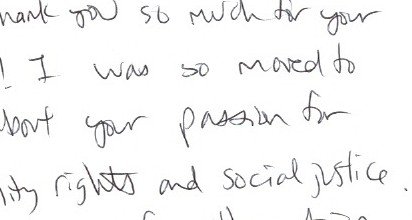 hank you so much for your
! I was so moved to
bout your passion for
lity rights and social justice.